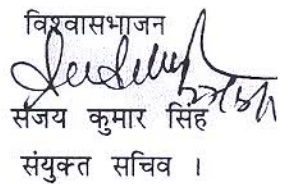 विश्वासभाजन
संजय कुमार सिंह
संयुक्त सचिव ।